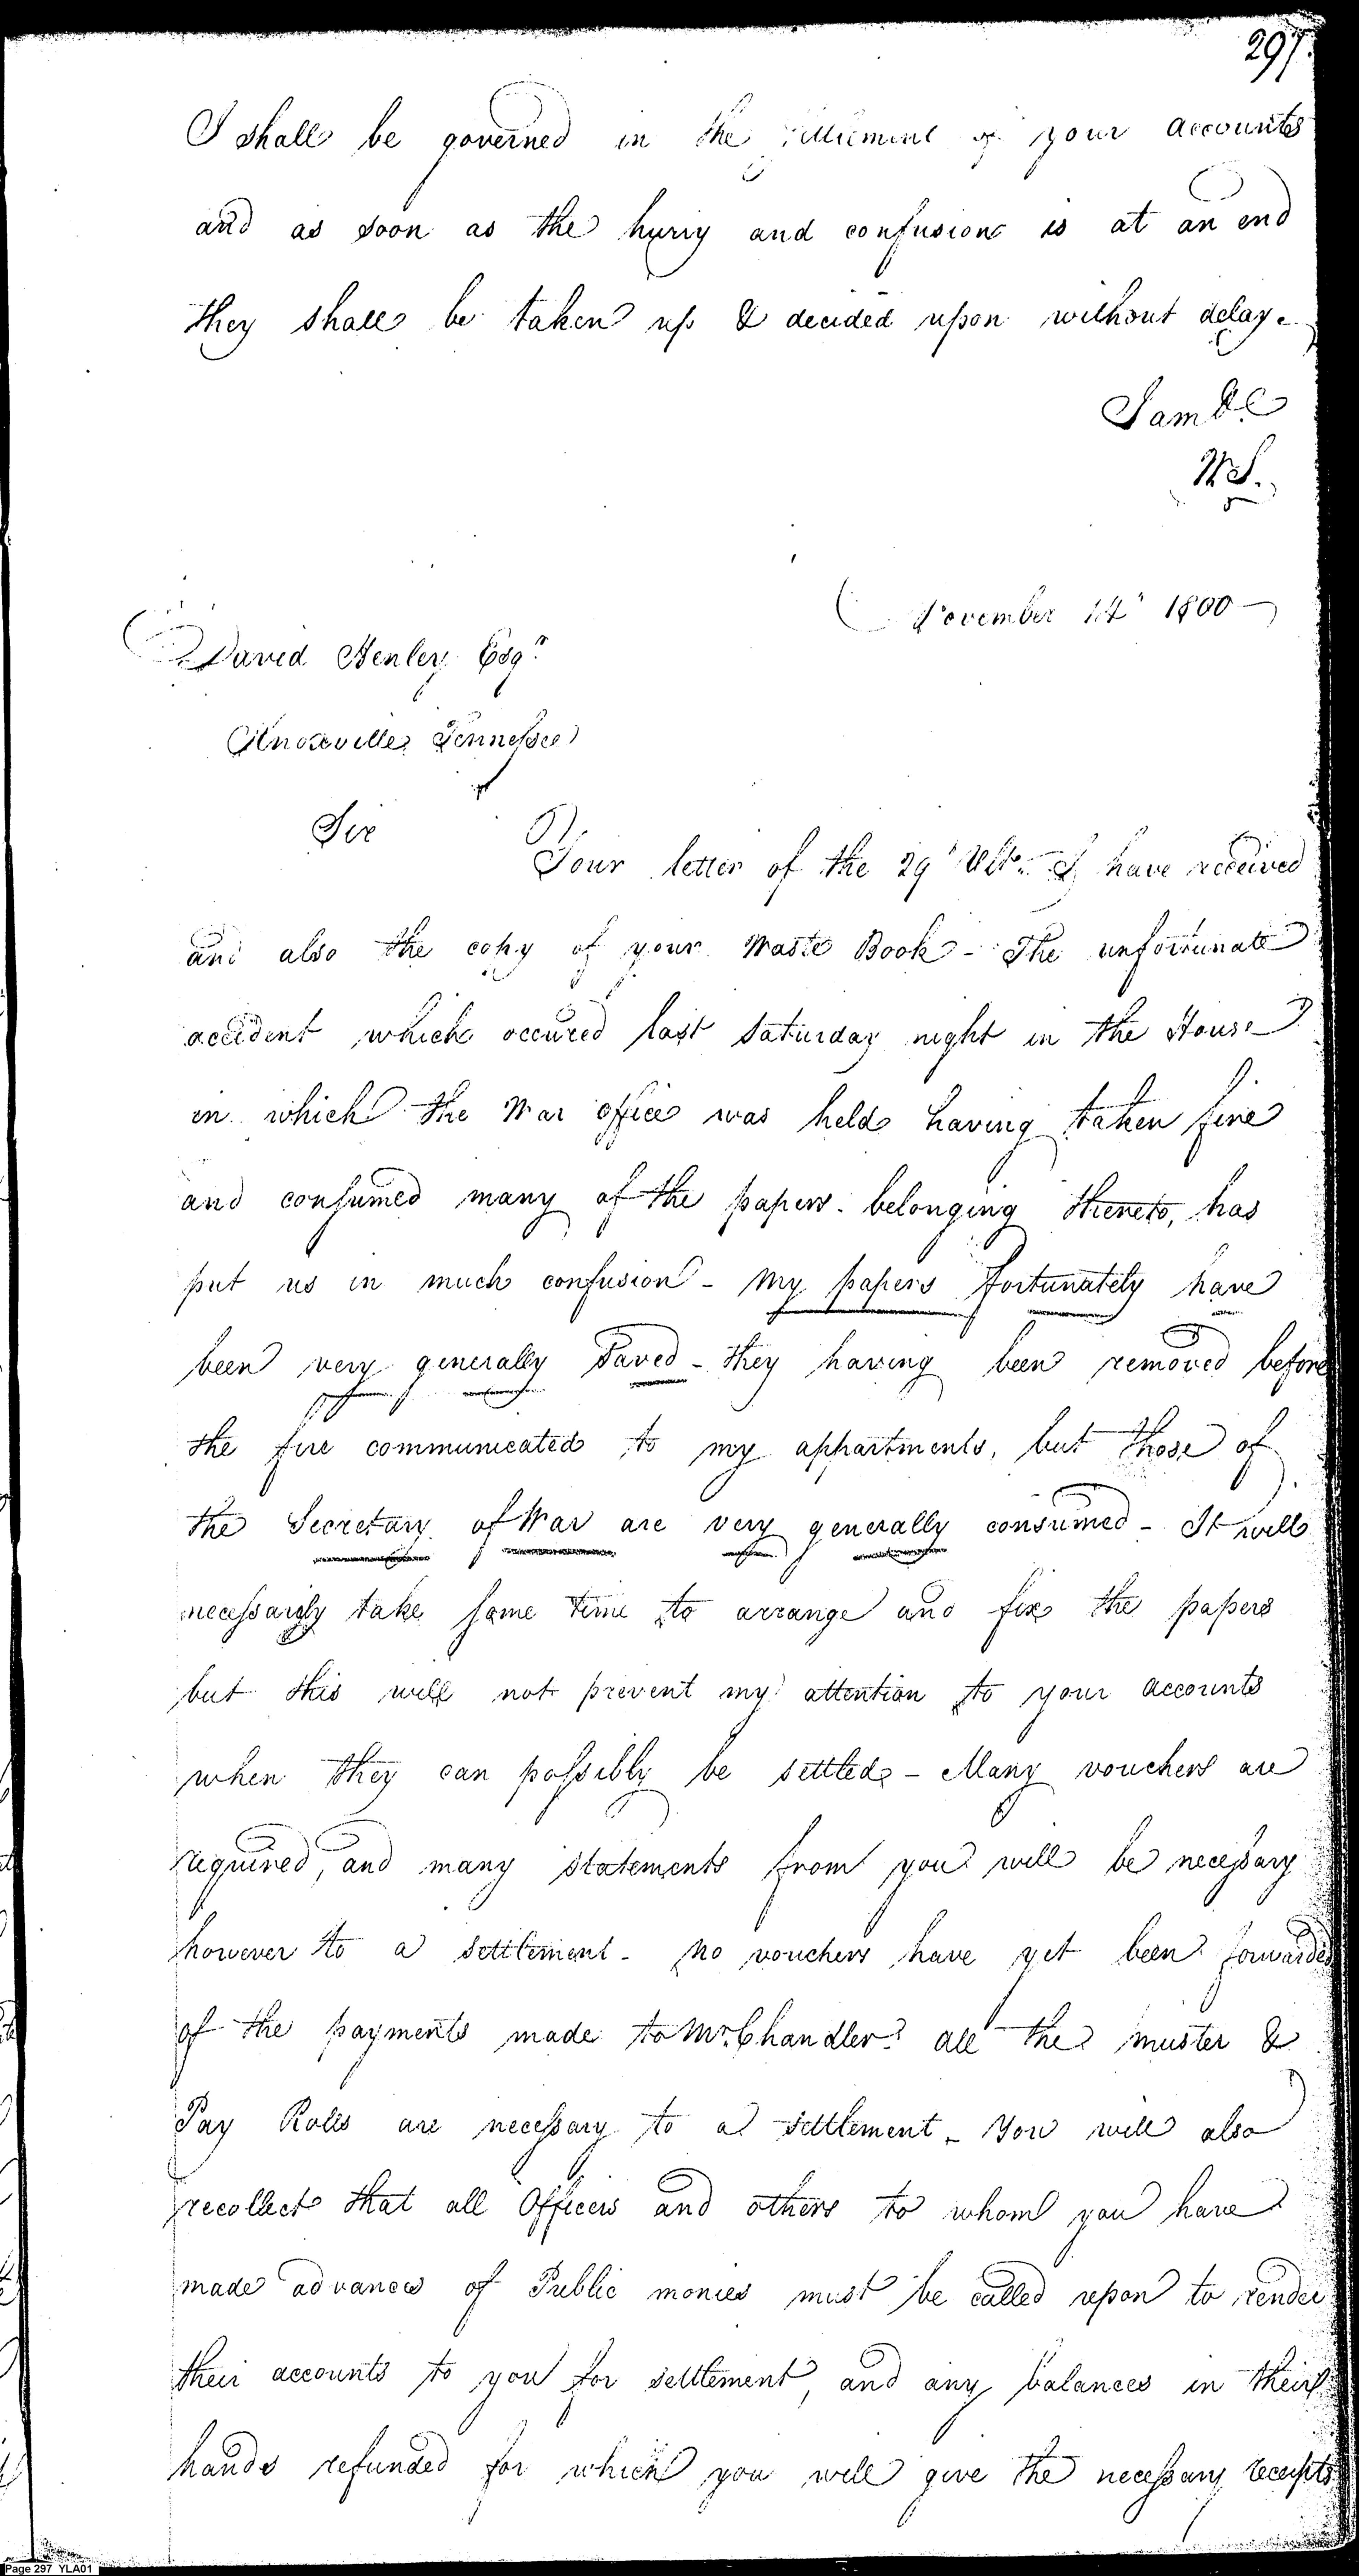 297.
I shall be governed in the settlement of your accounts
and as soon as the hurry and confusion is at an end
they shall be taken up & decided upon without delay.
I am &c
W S.
November 14th 1800
David Henley Esqr.
Knoxville Tennessee
Sir
Your letter of the 29th Ulto. I have received
and also the copy of your Waste Book - The unfortunate
accident which occured last Saturday night in the House
in which the War office was held having taken fire
and consumed many of the papers belonging thereto, has
put us in much confusion - my papers fortunately have
been very generally saved - they having been removed before
the fire communicated to my appartments, but those of
the Secretary of War are very generally consumed - It will
necessarily take some time to arrange and fix the papers
but this will not prevent my attention to your accounts
when they can possibly be settled - Many vouchers are
required, and many statements from you will be necessary
however to a settlement - No vouchers have yet been forwarded
of the payments made to Mr. Chandler? all the muster &
Pay Rolls are necessary to a settlement - You will also
recollect that all Officers and others to whom you have
made advances of Public monies must be called upon to render
their accounts to you for settlement, and any balances in their
hands refunded for which you will give the necessary receipts
Page 297 YLA01